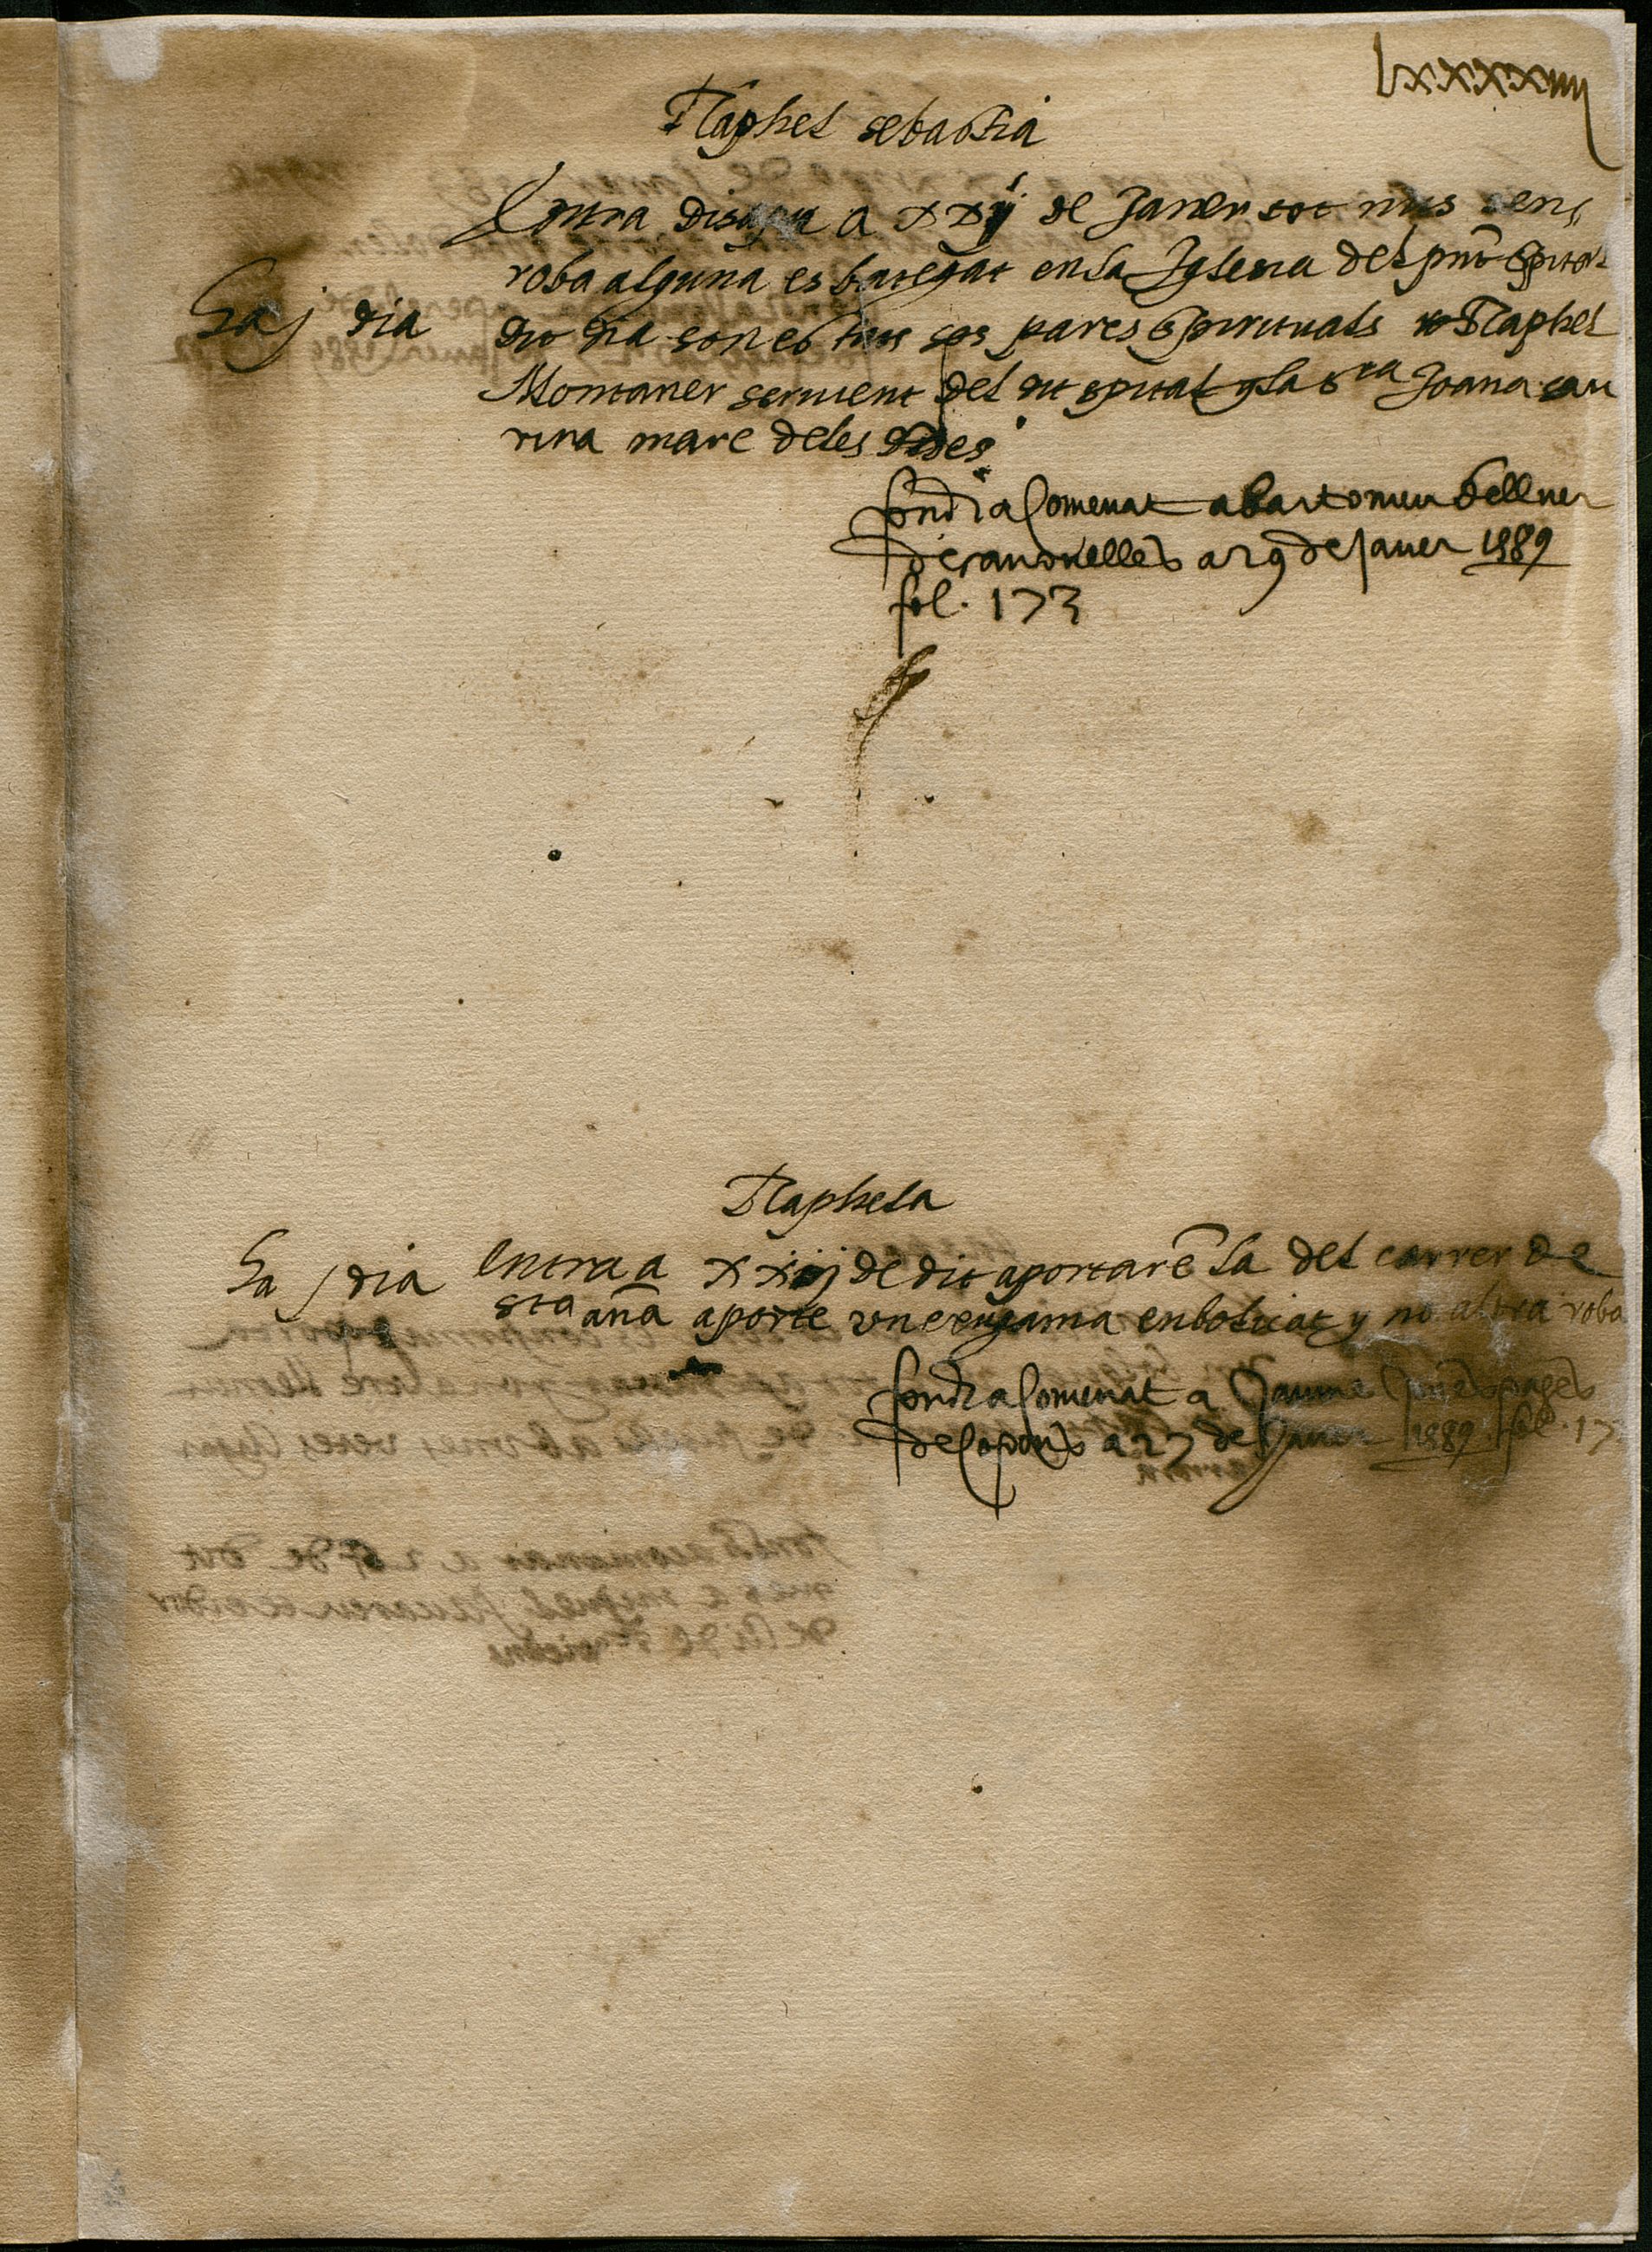 lxxxxiiij
Raphel sebastia
Entra disapte a xxij de Janer tot nus sens
roba alguna es bategat en la Iglesia del pnt spital
Ha j dia
dit dia son estats sos pares spirituals Raphel
Montaner servient del dit spital y la sra Joana cau
rina mare deles dides
fonch acomenat a bartomeu bellver
de canovelles a 29 de Janer 1589
fol. 173
Raphela
Ha j dia
Entra a xxiij de dit aportarē la del carrer de
sta aña aporte une engama enbolicat y no altra roba
fonch acomenat a Jaume pages
de a 27 de Janer 1589 fol. 17